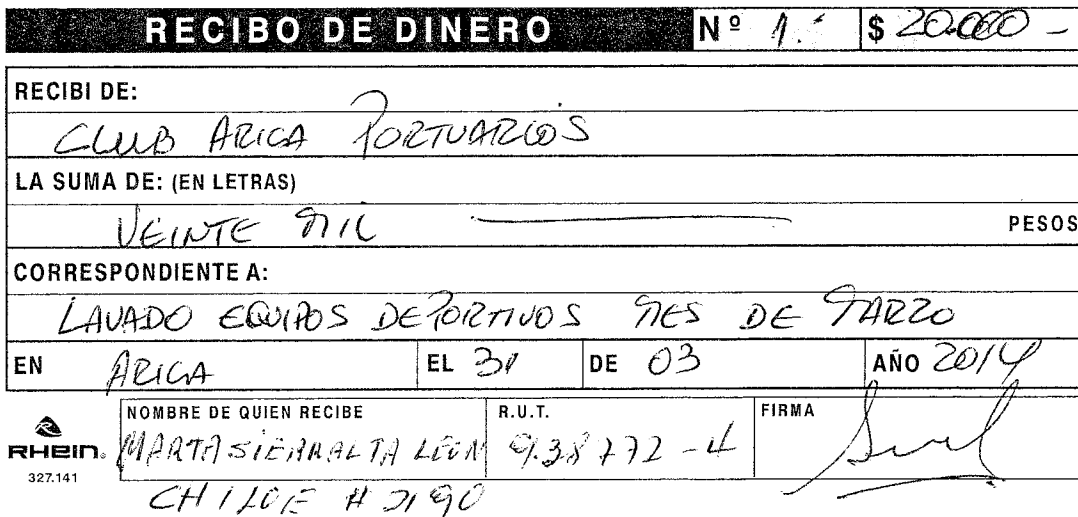 RECIBO DE DINERO Nº 1. $ 20.000 -
RECIBI DE:
CLUB ARICA PORTUARIOS
LA SUMA DE: (EN LETRAS)
VEINTE MIL PESOS
CORRESPONDIENTE A:
LAVADO EQUIPOS DEPORTIVOS MES DE MARZO
EN ARICA EL 31 DE 03 AÑO 2014
NOMBRE DE QUIEN RECIBE R.U.T. FIRMA
RHEIN. MARTA SIERRALTA LEON 9.38772-4
327.141
CHILOE #